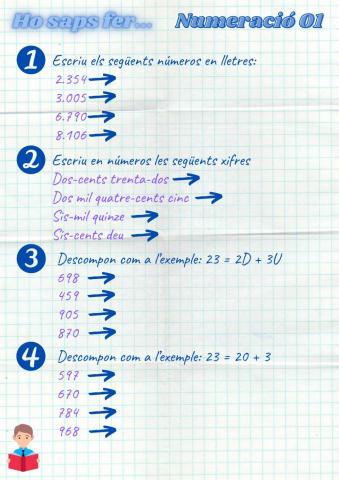 Ho saps fer... Numeració 01
1 Escriu els següents números en lletres:
2.354
3.005
6.790
8.106
2 Escriu en números les següents xifres
Dos-cents trenta-dos
Dos mil quatre-cents cinc
Sis-mil quinze
Sis-cents deu
3 Descompon com a l'exemple: 23 = 2D + 3U
698
459
905
870
4 Descompon com a l'exemple: 23 = 20 + 3
597
670
784
968